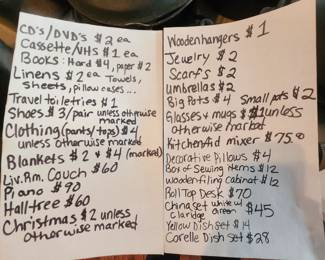 CD's/DVD's $2 ea
Cassette/VHS $1 ea
Books: Hard $4, paper $2
Linens $2 ea Towels,
sheets, pillow cases...
Travel toiletries $1
Shoes $3/pair unless otherwise
marked
Clothing (pants/tops) $4
unless otherwise marked
Blankets $2 & $4 (marked)
Liv. Rm. Couch $60
Piano $90
Hall tree $60
Christmas $2 unless
otherwise marked
Wooden hangers $1
Jewelry $2
Scarfs $2
Umbrellas $2
Big Pots $4 Small pots $2
Glasses & mugs $1 unless
otherwise marked
KitchenAid mixer $75.00
Decorative Pillows $4
Box of Sewing items $12
wooden filing cabinet $12
Roll Top Desk $70
China set white w/
claridge green $45
Yellow Dish set $14
Corelle Dish set $28